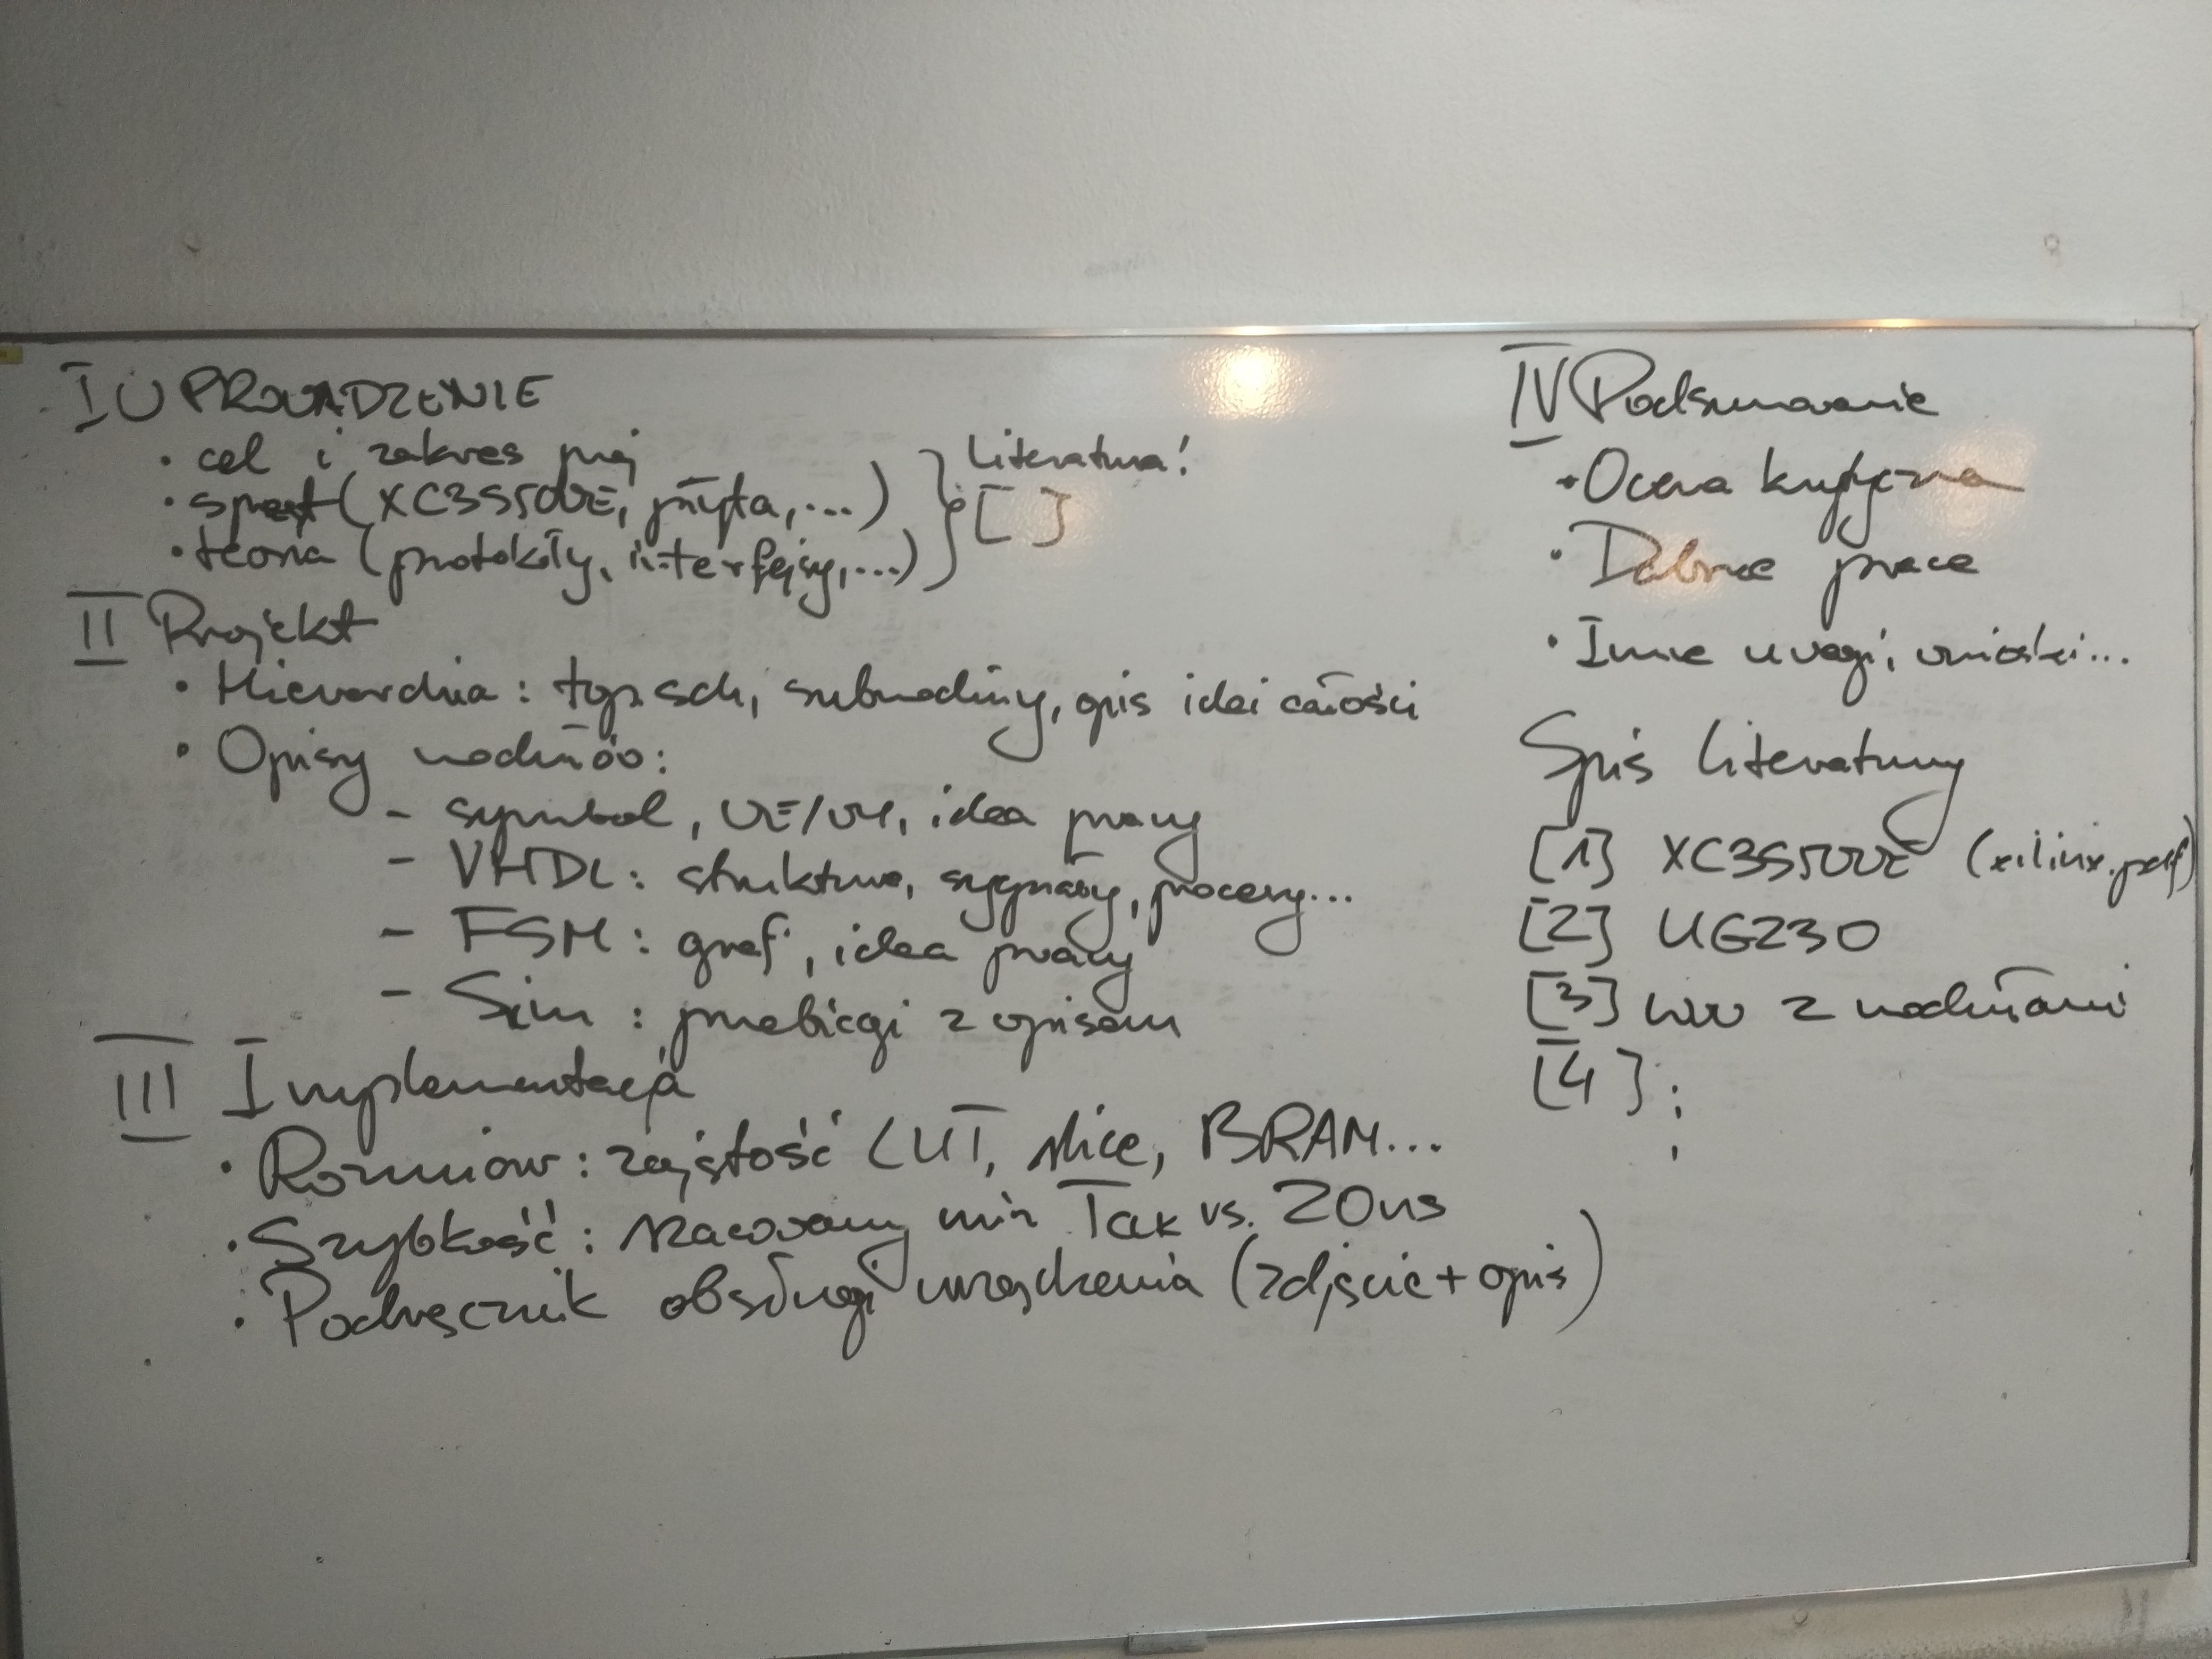 I WPROWADZENIE
• cel i zakres proj
• sprzęt (XC3S500E, płyta, ...)
• teoria (protokoły, interfejsy, ...)
} Literatura!
[ ]
II Projekt
• Hierarchia: top.sch, submoduły, opis idei całości
• Opisy modułów:
- symbol, WE/WY, idea pracy
- VHDL: struktura, sygnały, procesy...
- FSM: graf, idea pracy
- Sim: przebiegi z opisem
III Implementacja
• Rozmiar: zajętość LUT, slice, BRAM...
• Szybkość: szacowany min Tclk vs. 20ns
• Podręcznik obsługi urządzenia (zdjęcie + opis)
IV Podsumowanie
• Ocena krytyczna
• Dalsze prace
• Inne uwagi, wnioski...
Spis literatury
[1] XC3S500E (xilinx.pdf)
[2] UG230
[3] www z modułami
[4] :